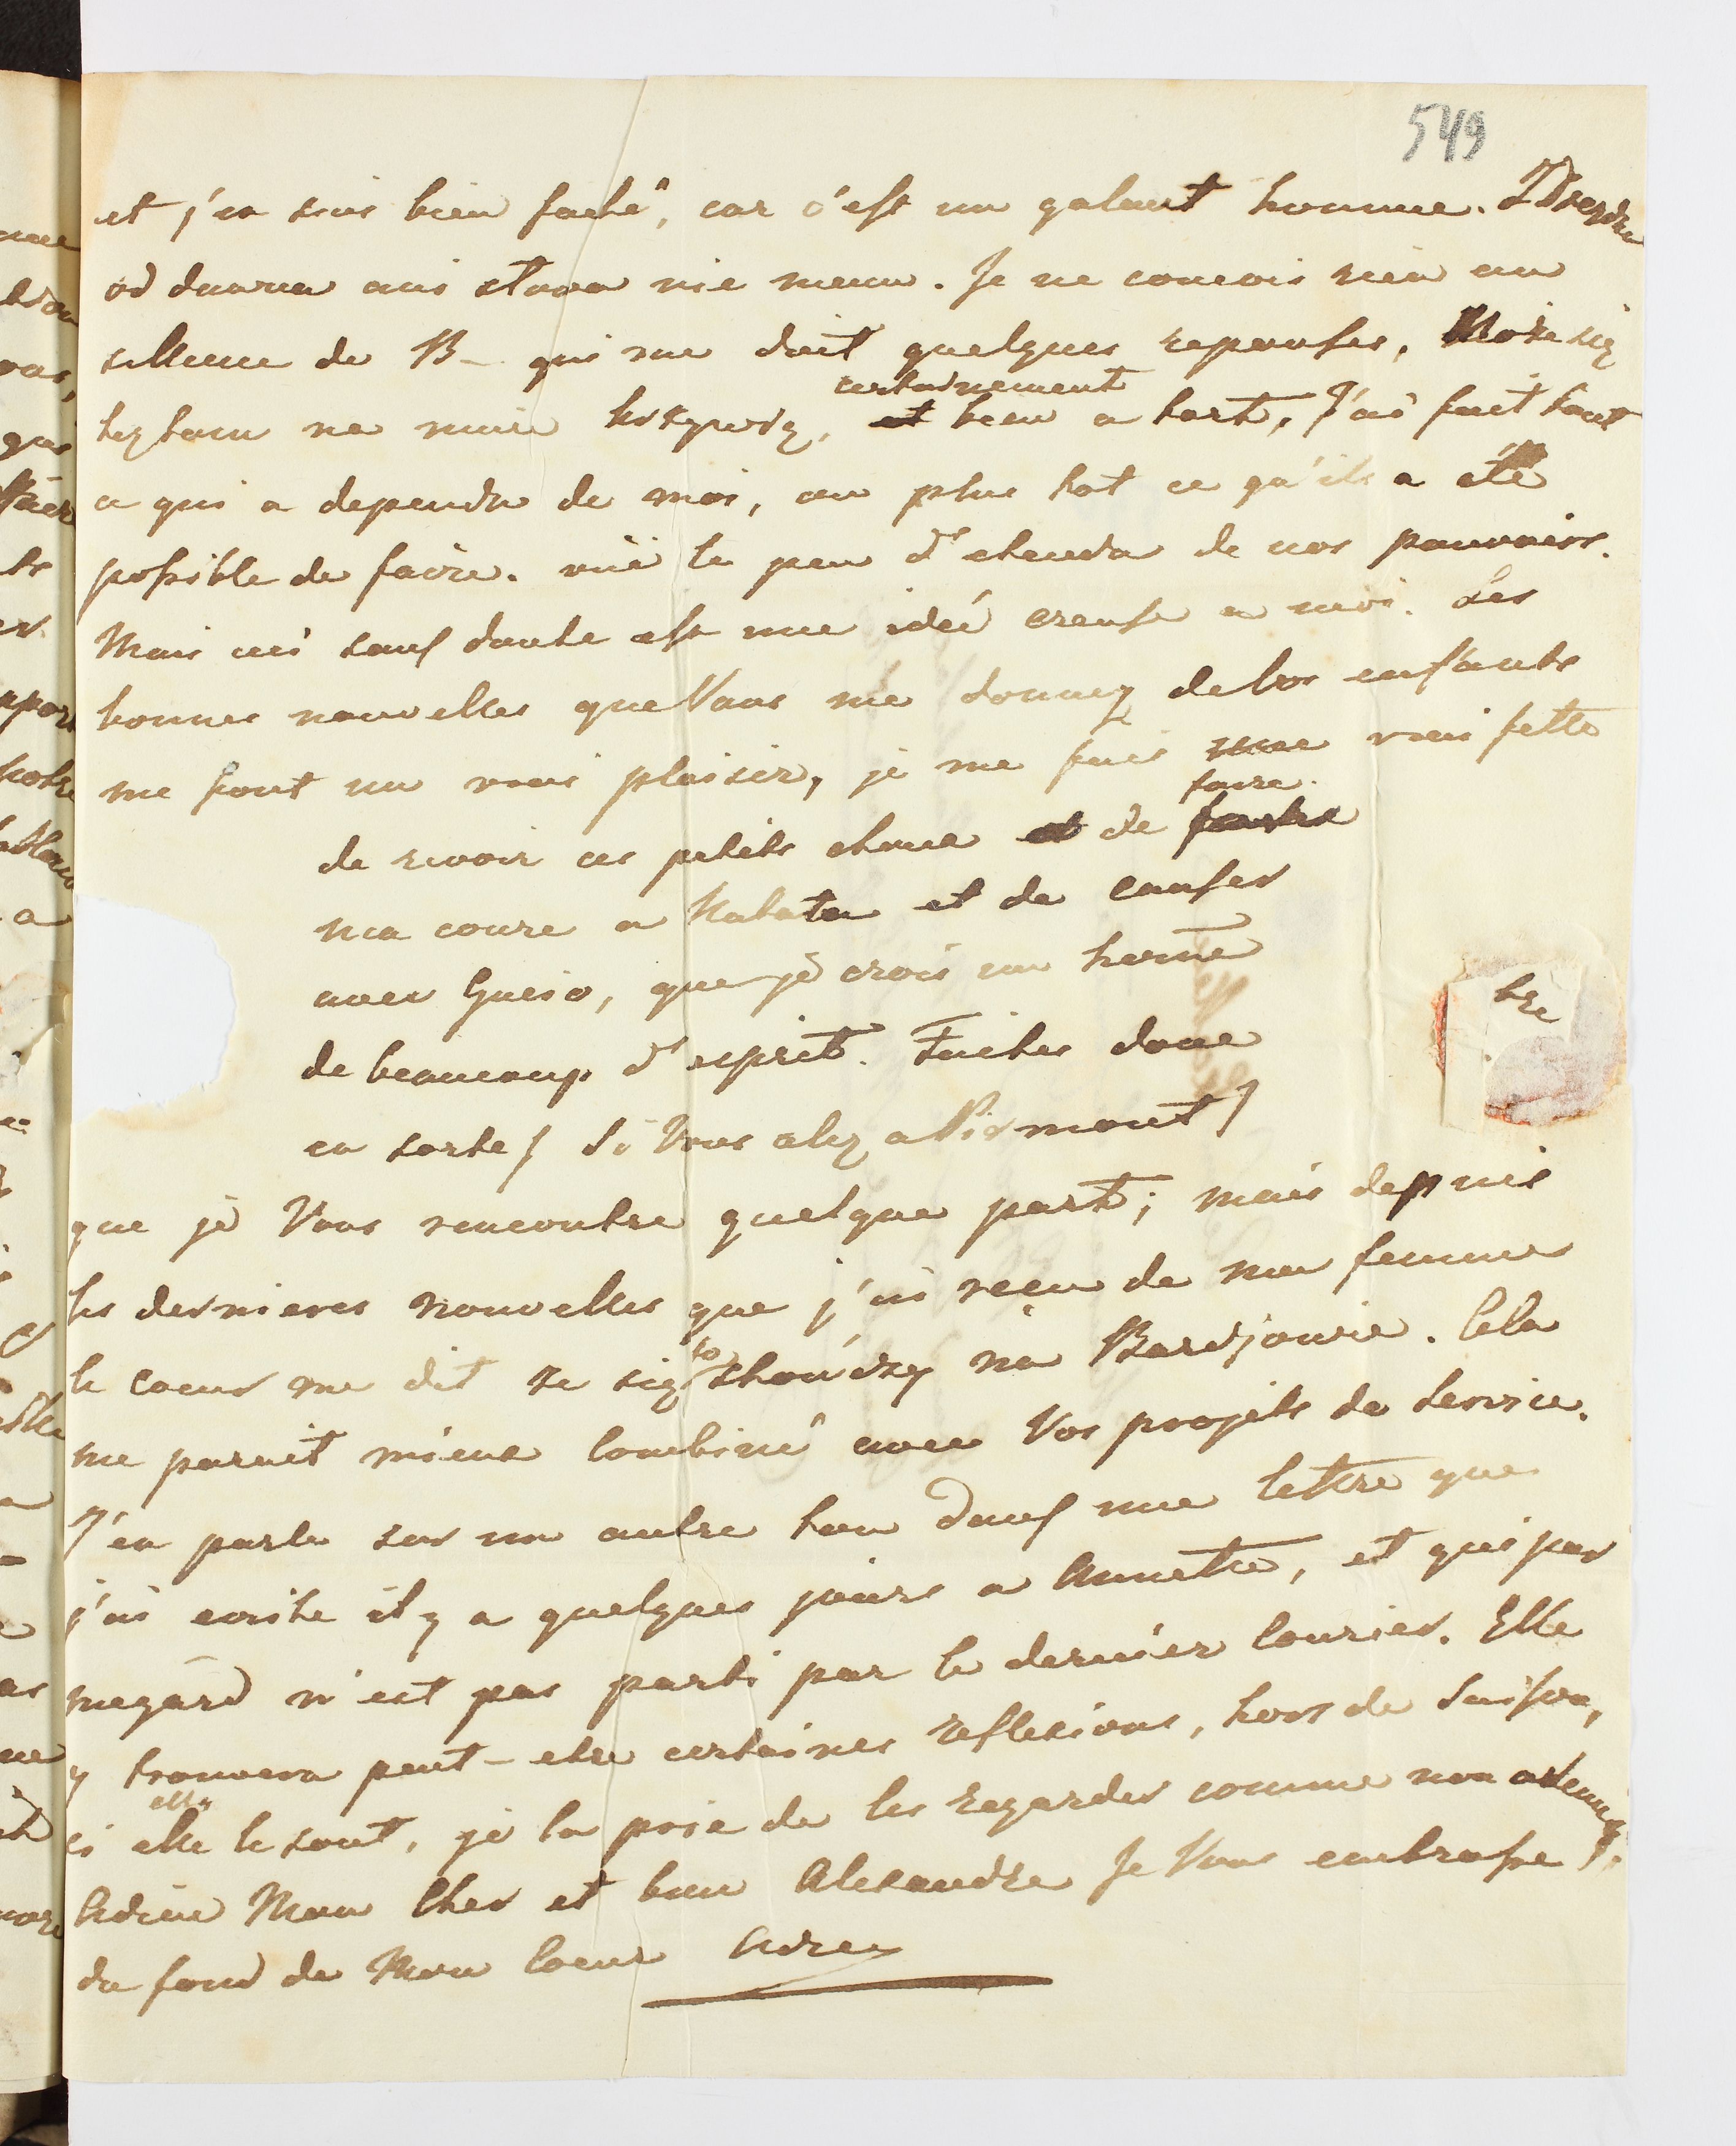 549
et j'en suis bien faché, car c'est un galant homme. Z Drezdna
od dawna ani słowa nie mam. Je ne concois rien au
sillence de B– qui me doit quelques reponses, Može się
też tam na mnie krzywdzą, certainement bien a tort, J'ai fait tout
ce qui a dependu de moi, ou plus tot ce qu'ils a été
possible de faire. vuë le peu d'etendu de nos pouvoirs.
Mais ceci sans doute est une ideé creuse a moi. Les
bonnes nouvelles que Vous me donnez de Vos enfants
me font un vrai plaisir, je me fais une vrai fette
de revoir ces petits choux et de faire
ma coure a Natata et de causer
avec Gucio, que je crois un home
de beaucoup d'esprit. Faites donc
en sorte / Si Vous alez a Pirmont /
que je Vous rencontre quelque part; mais depuis
les dernieres nouvelles que j'ai reçu de ma femme
le coeur me dit že się to skończy na Bardjowie. Cela
me parait mieux combiné avec Vos projets de service.
J'en parle sur un autre ton dans une lettre que
j'ai ecrite il y a quelques jours a Annette, et qui par
megard n'est pas parti par le dernier Courier. Elle
y trouvera peut-etre certaines reflexions, hors de Saison,
si elle le sont, je la prie de les regarder comme non avenues.
Adieu Mon Cher et bon Alexandre Je Vous embrasse
du fond de Mon Coeur